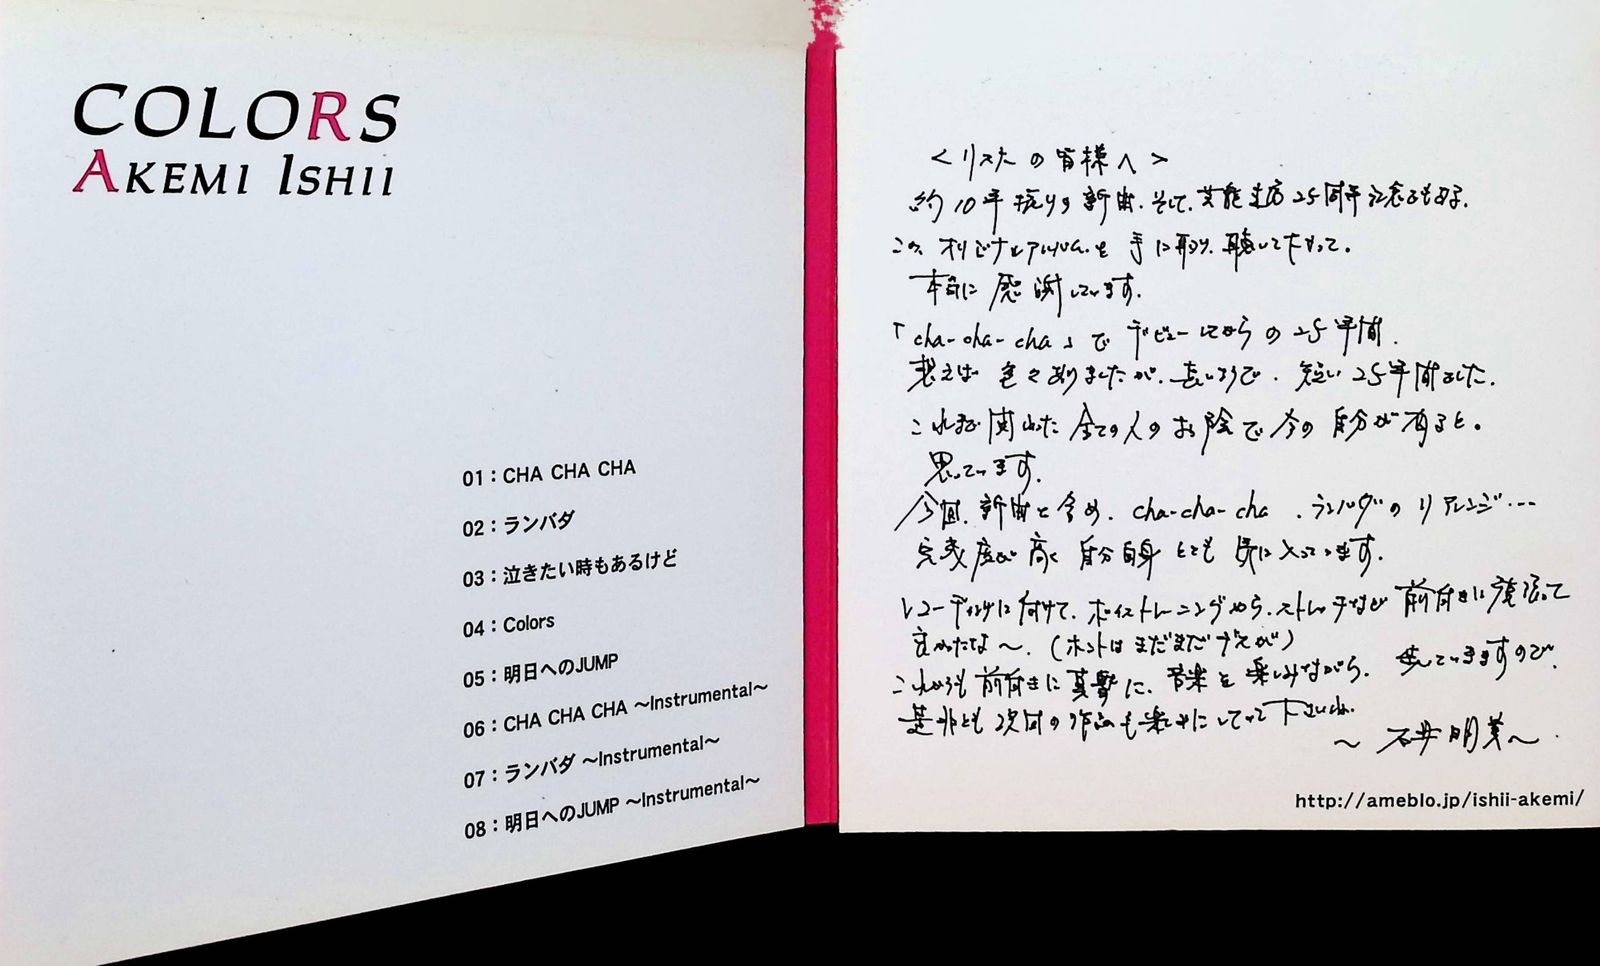 COLORS
AKEMI ISHII
01：CHA CHA CHA
02：ランバダ
03：泣きたい時もあるけど
04：Colors
05：明日へのJUMP
06：CHA CHA CHA 〜Instrumental〜
07：ランバダ 〜Instrumental〜
08：明日へのJUMP 〜Instrumental〜
＜リスナーの皆様へ＞
約10年振りの新曲、そして、芸能生活25周年記念でもある、
この、オリジナルアルバムを手に取り、聴いて下さって。
本当に感謝しています。
「cha-cha-cha」でデビューしてからの25年間。
想えば色々ありましたが、長いようで、短い25年間でした。
これまで関わった全ての人のお陰で今の自分が有ると。
思っています。
今回、新曲を含め、cha-cha-cha、ランバダのリアレンジ…
完成度が高く自分自身とても気に入っています。
レコーディングに付けて、ボイストレーニングやら、ストレッチなど前向きに頑張って
良かったな〜。（ホントはまだまだですが）
これからも前向きに真摯に、音楽を楽しみながら、歩いていきますので、
是非とも次回の作品も楽しみにしてて下さいね。
〜石井明美〜
http://ameblo.jp/ishii-akemi/